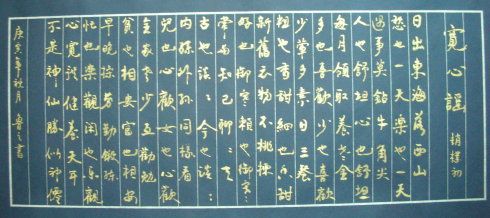 寬心謡 趙樸初
日出東海落西山
愁也一天樂也一天
遇事莫鑽牛角尖
人也舒坦心也舒坦
每月領取養老金
多也喜歡少也喜歡
少葷多素日三餐
粗也香甜細也香甜
新舊衣物不挑揀
好也御寒賴也御寒
常與知己聊聊天
古也談談今也談談
内孫外孫同樣看
兒也心歡女也心歡
全家老少互勸勉
貧也相安富也相安
早晚操勞勤鍛煉
忙也樂觀閑也樂觀
心寬體健養天年
不是神仙勝似神僊
庚寅年秋月 書